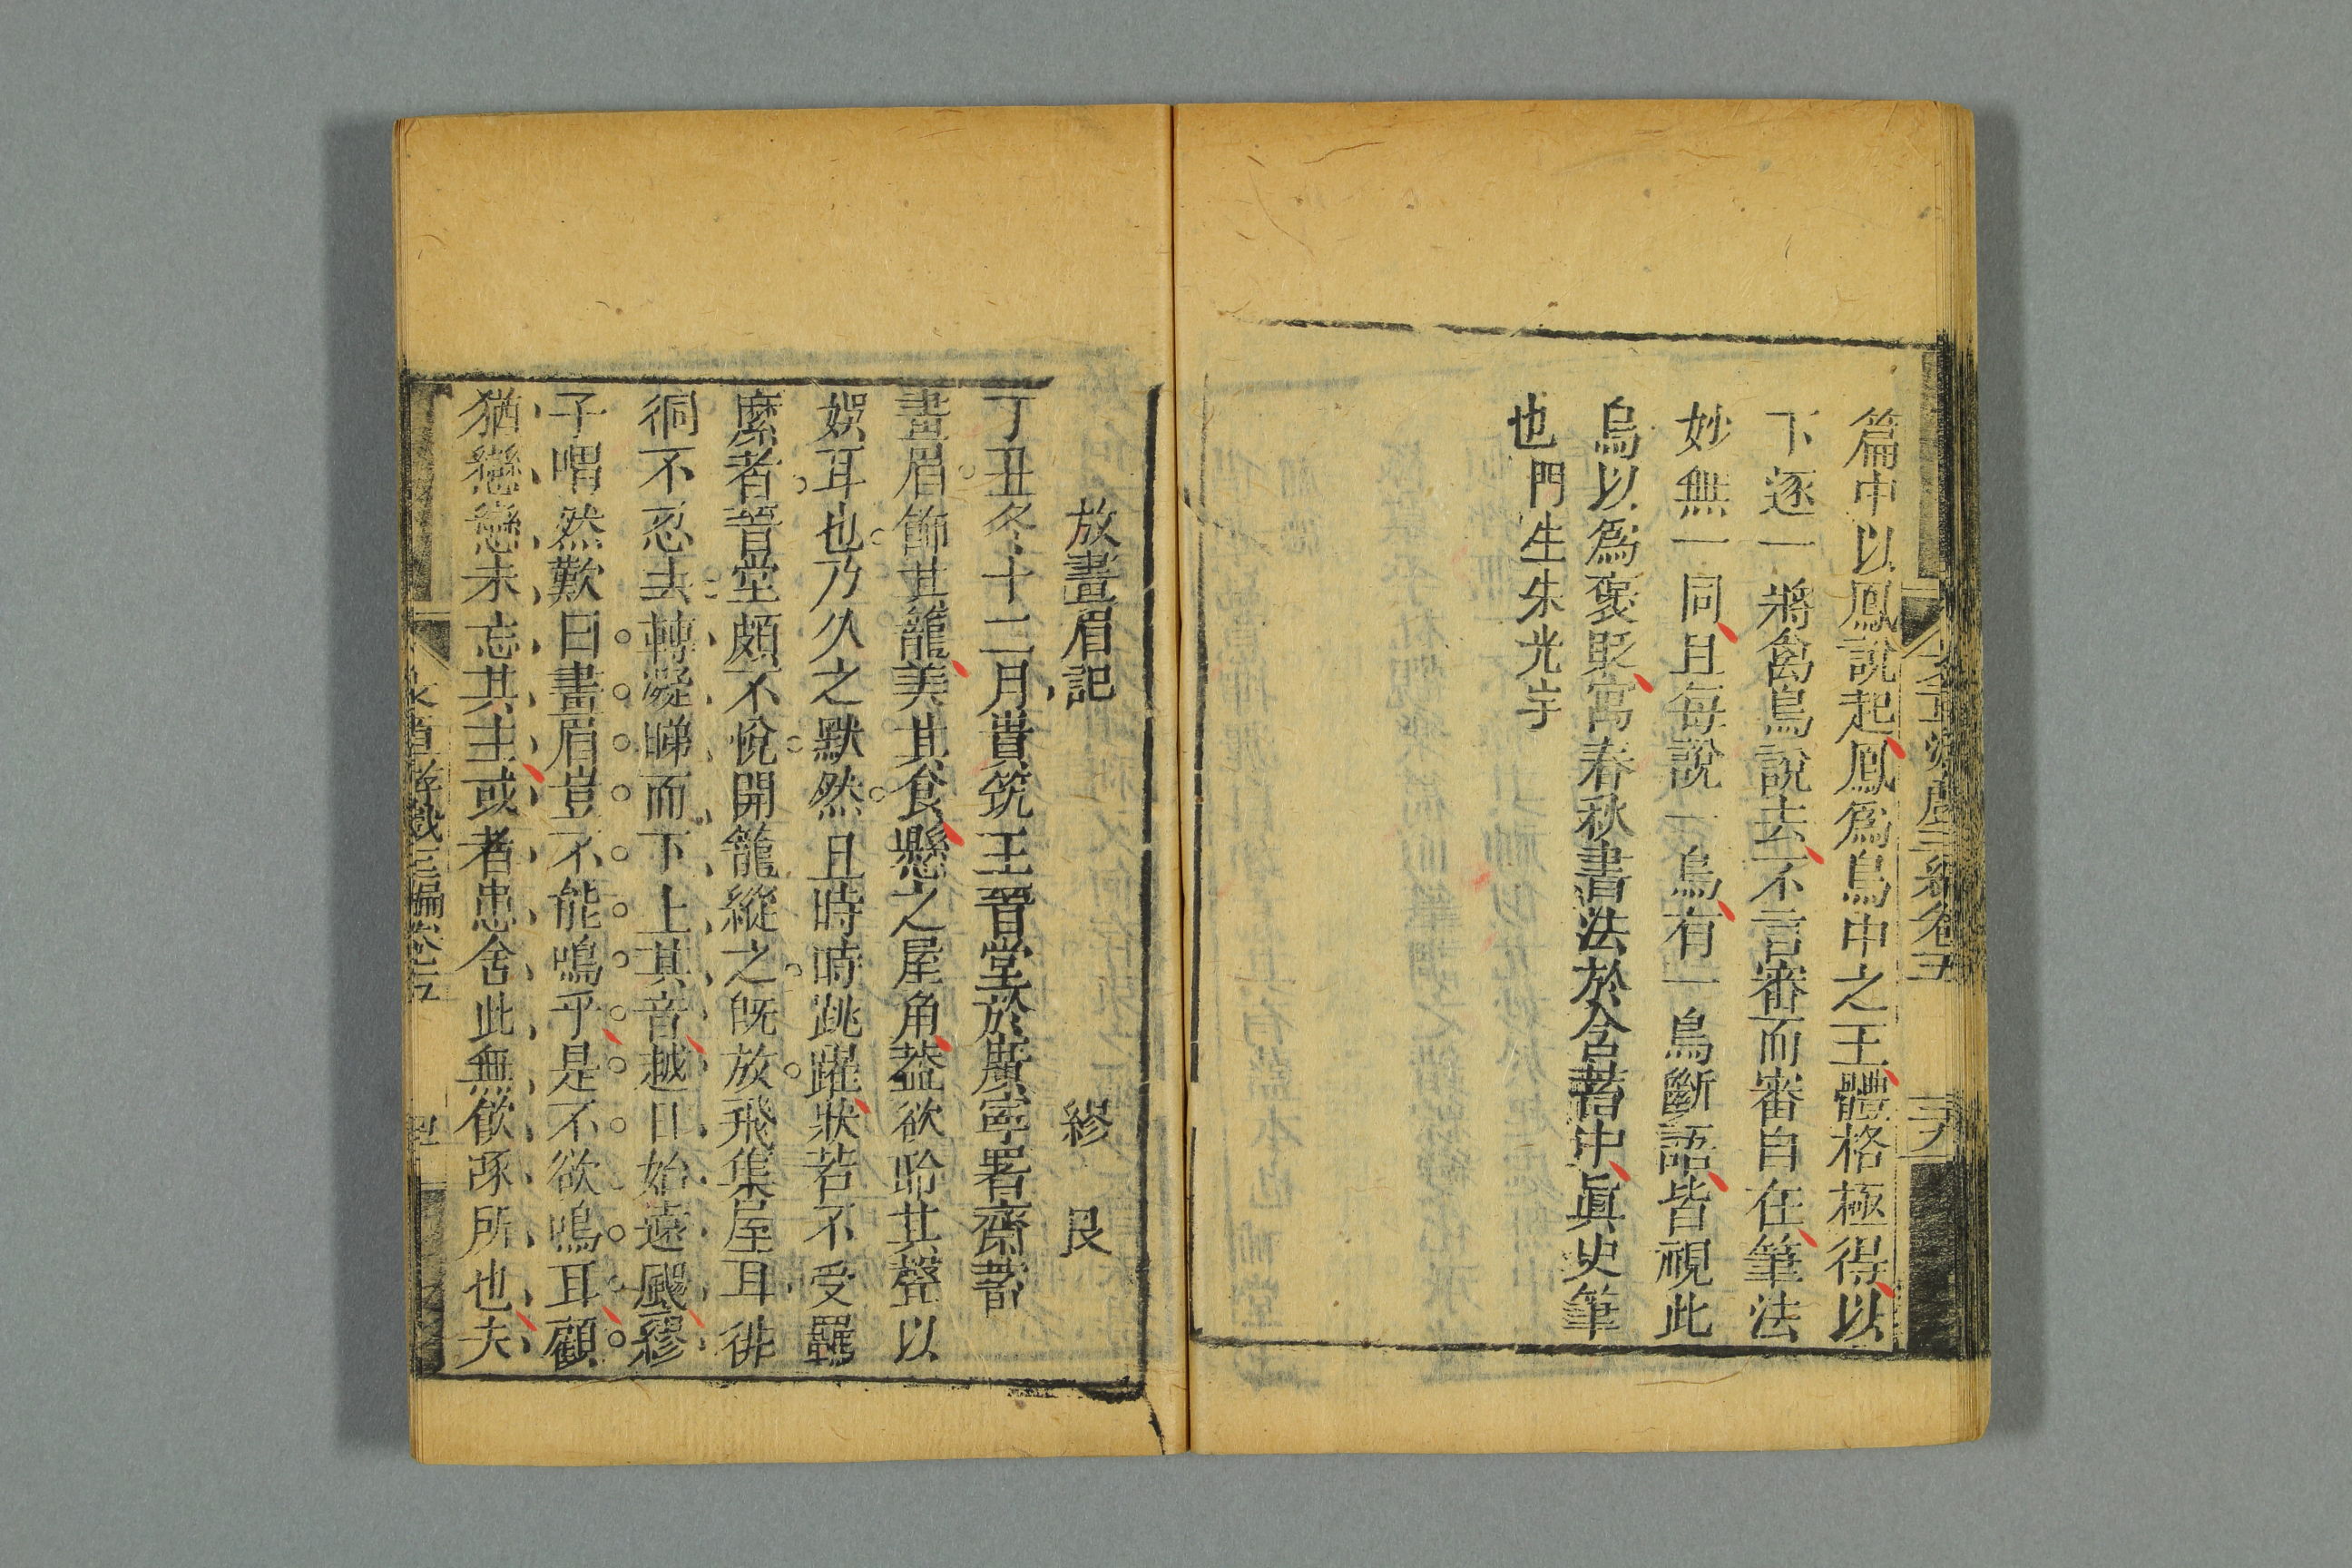 篇中以鳳說起鳳爲鳥中之王體格極得以
下逐一將禽鳥說去不言審而審自在筆法
妙無一同且每說一鳥有一鳥斷語皆視此
鳥以爲褒貶寓春秋書法於含蓄中眞史筆
也門生朱光宇
三編卷五
放畫眉記
繆艮
丁丑冬十二月貴筑王晉堂於廣寧署齋蓄
畫眉飾其籠美其食懸之屋角葢欲聆其聲以
娛耳也乃久之默然且時時跳躍狀若不受羈
縻者晉堂頗不悅開籠縱之旣放飛集屋耳徘
徊不忍去轉凝睇而下上其音越日始遠颺繆
子喟然歎曰畫眉豈不能鳴乎是不欲鳴耳顧
猶戀戀未忘其主或者患舍此無飮啄所也夫
三編卷五